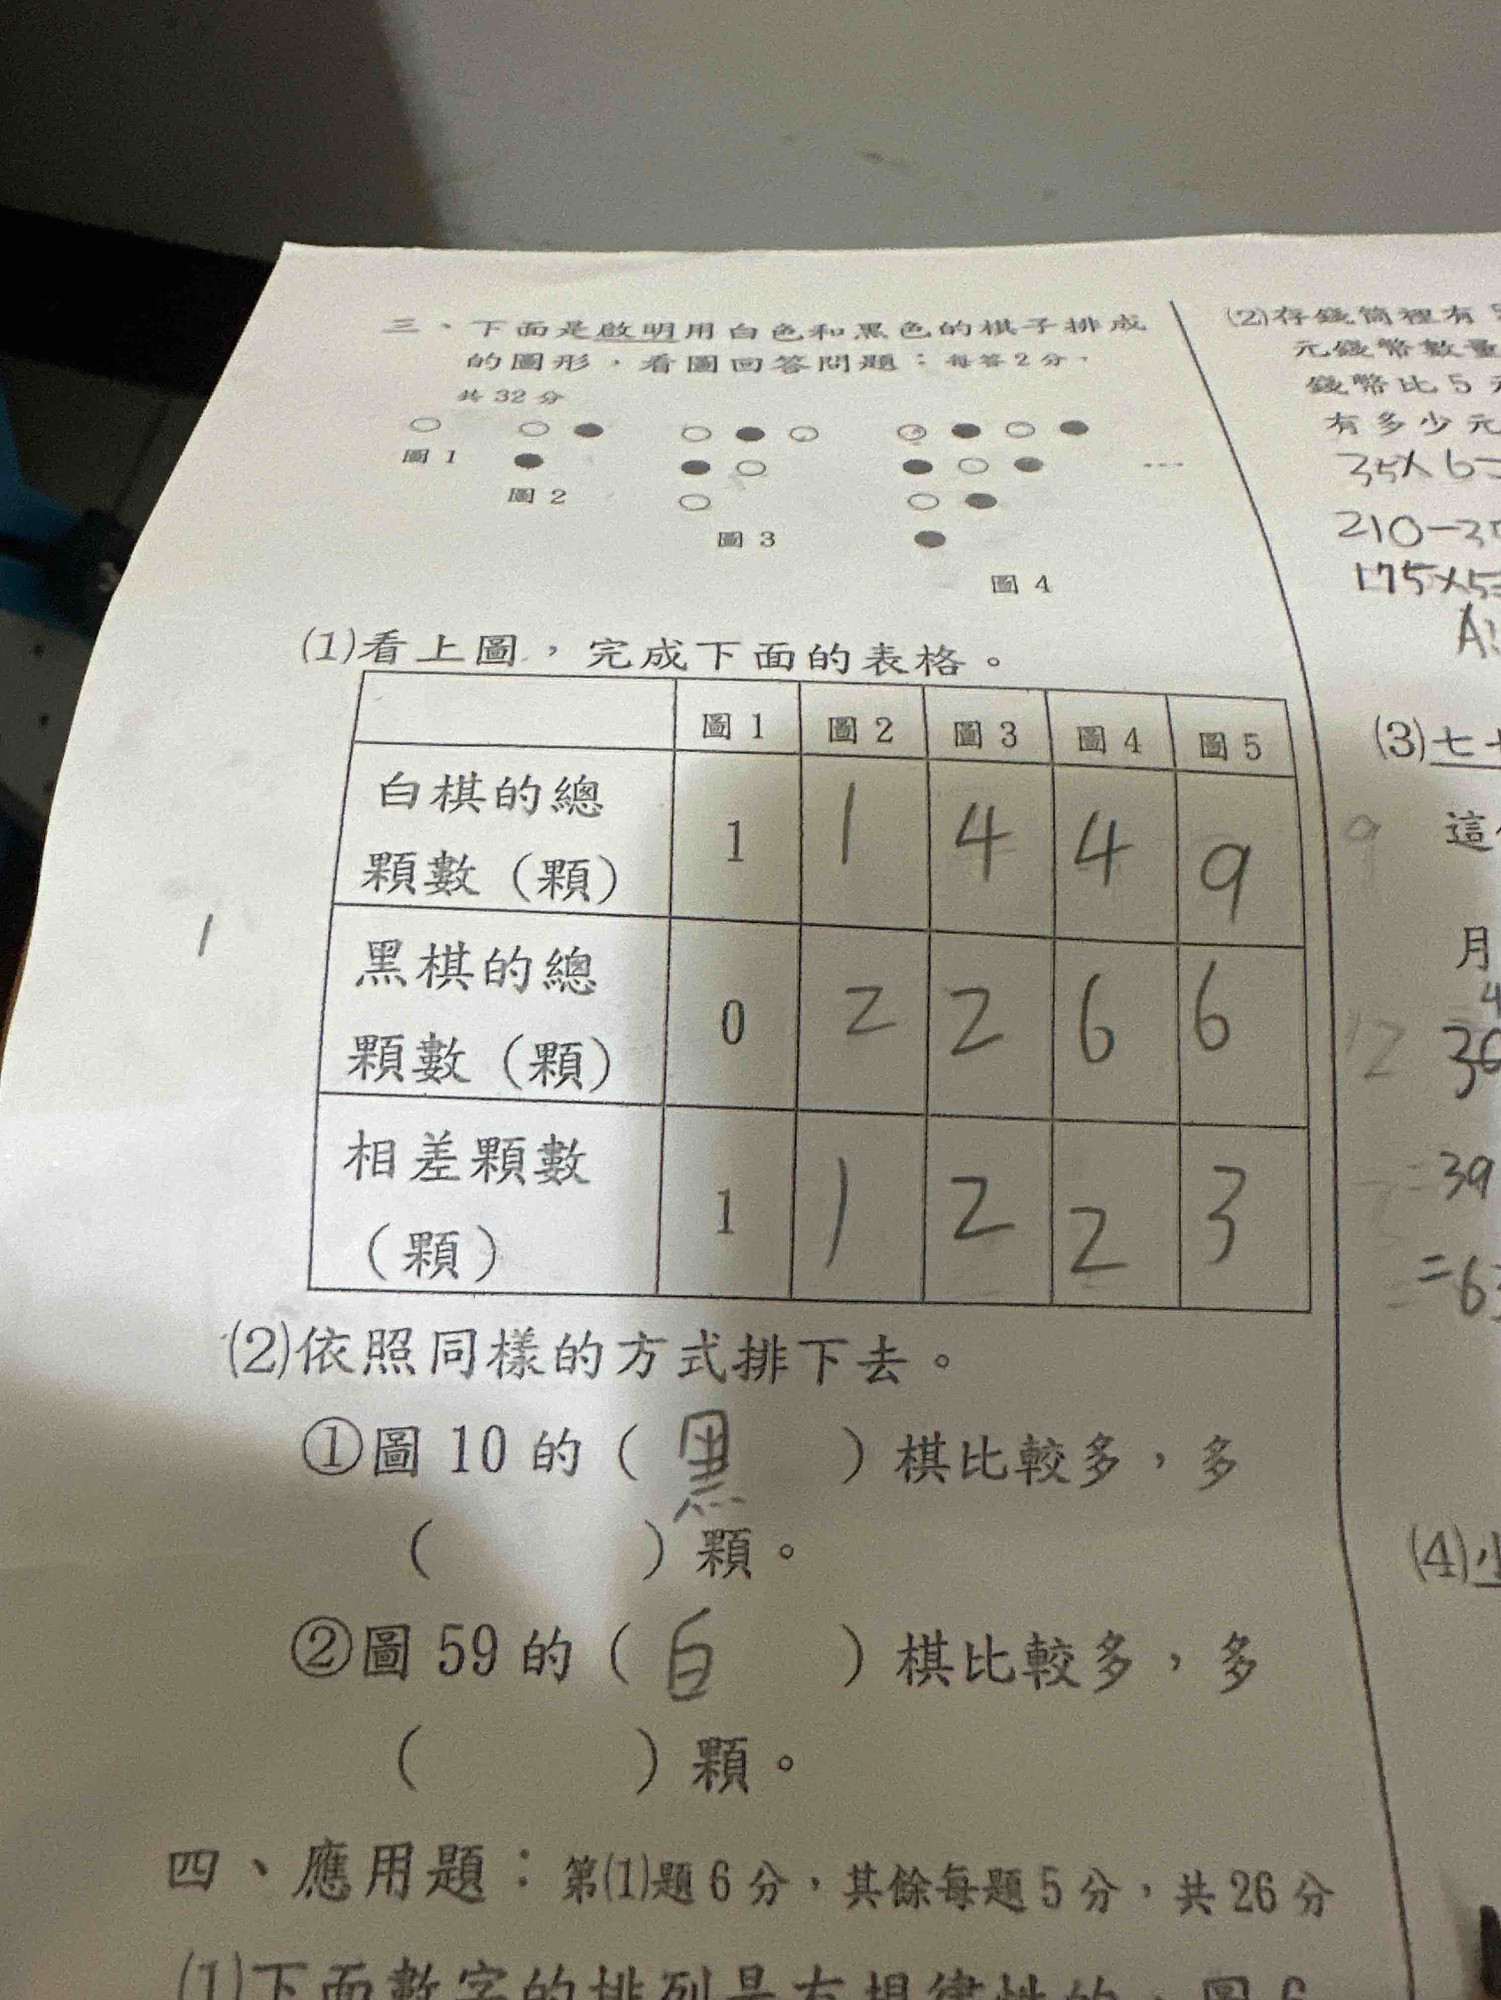 三、下面是啟明用白色和黑色的棋子排成
的圖形，看圖回答問題：每答2分，
共32分
圖1
圖2
圖3
圖4
…
(1)看上圖，完成下面的表格。
圖1 圖2 圖3 圖4 圖5
白棋的總
顆數（顆） 1 1 4 4 9
黑棋的總
顆數（顆） 0 2 2 6 6
相差顆數
（顆） 1 1 2 2 3
1
(2)依照同樣的方式排下去。
①圖10的（ 黑 ）棋比較多，多
（ ）顆。
②圖59的（ 白 ）棋比較多，多
（ ）顆。
四、應用題：第(1)題6分，其餘每題5分，共26分
(1)下面數字的排列是有規律性的，圖6
(2)存錢筒裡有
元錢幣數量
錢幣比5
有多少元
35×6=
210-35
175×5=
A:
(3)七
9
這
月
4
12
36
=39
=63
(4)小